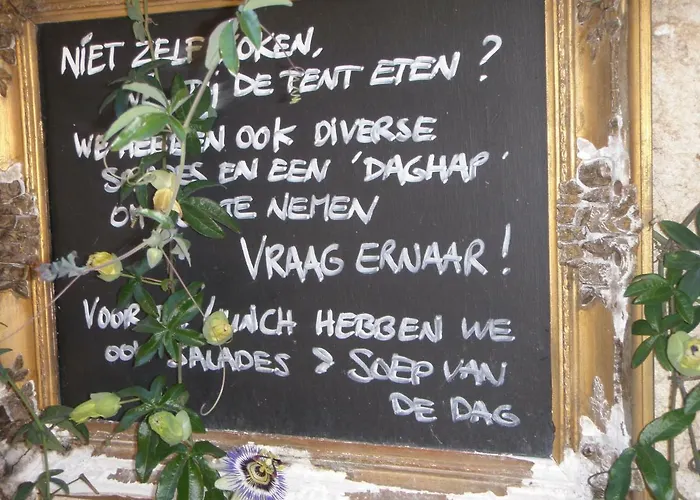 NIET ZELF KOKEN,
BIJ DE TENT ETEN ?
WE HEBBEN OOK DIVERSE
EN EEN 'DAGHAP'
OM TE NEMEN
VRAAG ERNAAR!
VOOR DE LUNCH HEBBEN WE
OOK SALADES & SOEP VAN
DE DAG